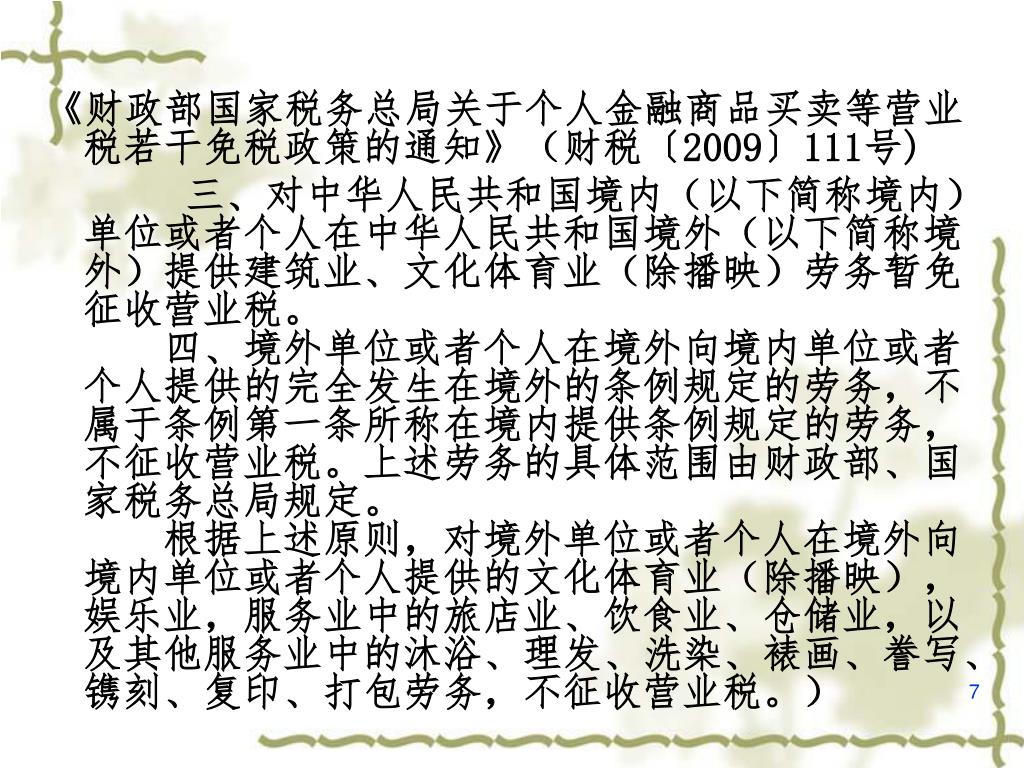 《财政部国家税务总局关于个人金融商品买卖等营业
税若干免税政策的通知》（财税〔2009〕111号)
三、对中华人民共和国境内（以下简称境内）
单位或者个人在中华人民共和国境外（以下简称境
外）提供建筑业、文化体育业（除播映）劳务暂免
征收营业税。
四、境外单位或者个人在境外向境内单位或者
个人提供的完全发生在境外的条例规定的劳务，不
属于条例第一条所称在境内提供条例规定的劳务，
不征收营业税。上述劳务的具体范围由财政部、国
家税务总局规定。
根据上述原则，对境外单位或者个人在境外向
境内单位或者个人提供的文化体育业（除播映），
娱乐业，服务业中的旅店业、饮食业、仓储业，以
及其他服务业中的沐浴、理发、洗染、裱画、誊写、
镌刻、复印、打包劳务，不征收营业税。）
7